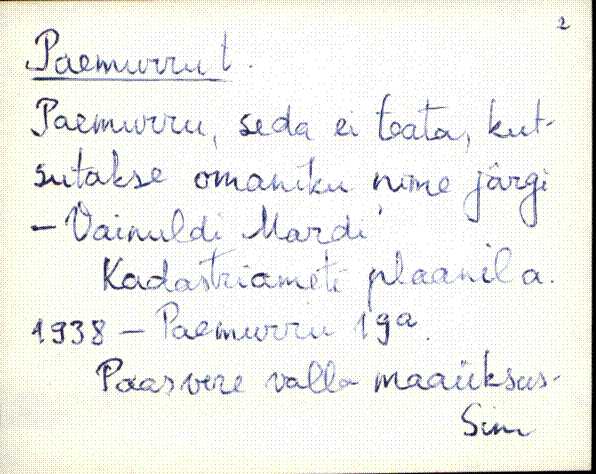 2
Paemurru t.
Paemurru, seda ei teata, kut-
sutakse omaniku nime järgi
– Vainuldi Mardi
Kadastriameti plaanil a.
1938 – Paemurru 19a.
Paasvere valla maaüksus-
Sim